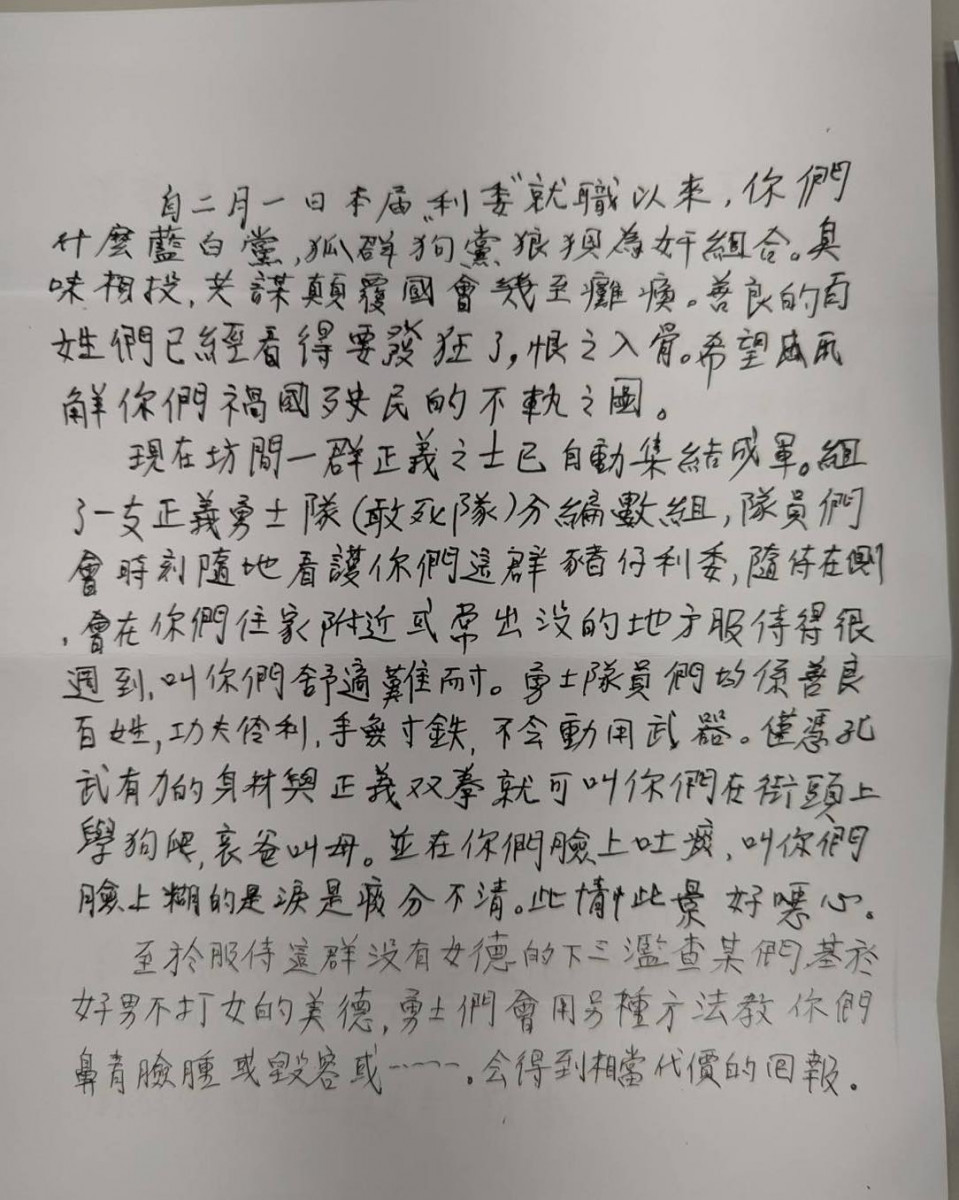 自二月一日本届“利委”就職以來，你們
什麼藍白黨，狐群狗黨狼狽為奸組合。臭
味相投，共謀顛覆國會幾至癱瘓。善良的百
姓們已經看得要發狂了，恨之入骨。希望瓦
解你們禍國殃民的不軌之圖。
現在坊間一群正義之士已自動集結成軍。組
了一支正義勇士隊（敢死隊）分編數組，隊員們
會時刻隨地看護你們這群豬仔利委，隨侍在側
，會在你們住家附近或常出没的地方服侍得很
週到，叫你們舒適難耐。勇士隊員們均係善良
百姓，功夫伶利，手無寸鉄，不会動用武器。僅憑孔
武有力的身材與正義双拳就可叫你們在街頭上
學狗爬，哀爸叫母。並在你們臉上吐痰，叫你們
臉上糊的是淚是痰分不清。此情此景好噁心。
至於服侍這群没有女德的下三濫查某們，基於
好男不打女的美德，勇士們會用另種方法教你們
鼻青臉腫或毀容或……。会得到相當代價的回報。